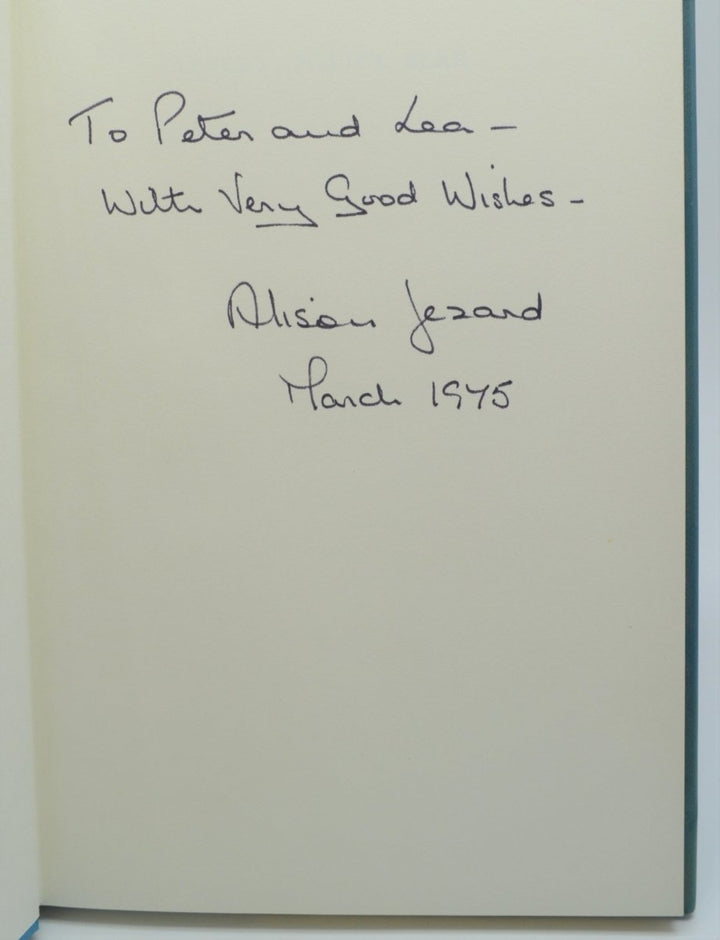 To Peter and Lea -
With Very Good Wishes -
Alison Jezard
March 1975